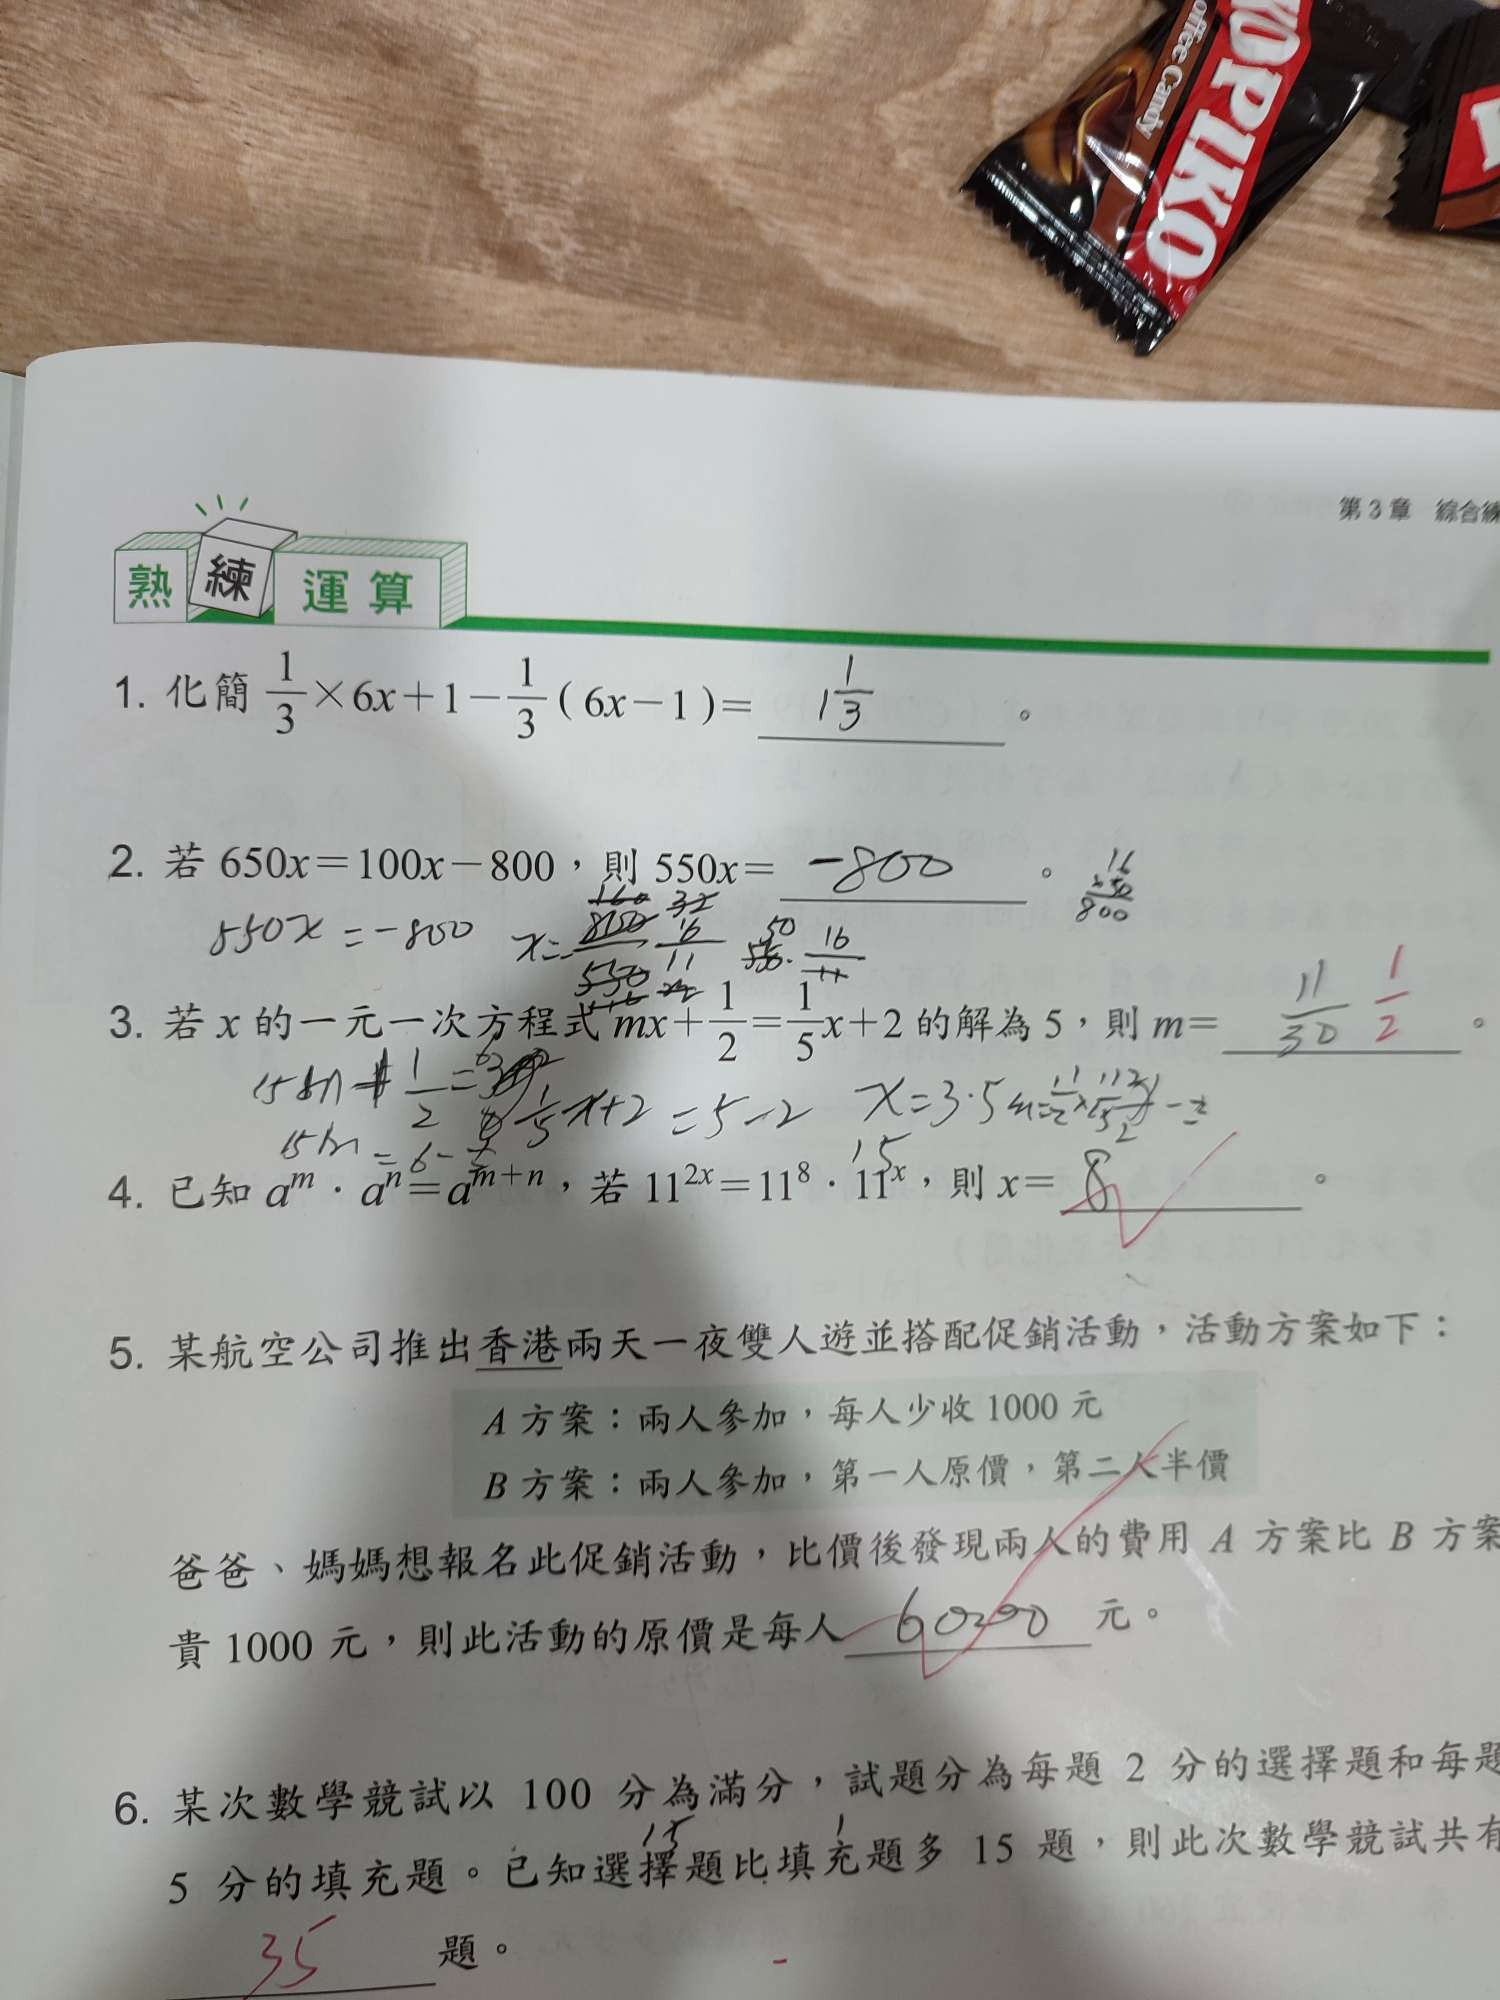 KOPIKO
Coffee Candy
第3章 綜合練
熟練運算
1. 化簡 1/3×6x+1−1/3(6x−1)= 1 1/3 。
2. 若 650x=100x−800,則 550x= −800 。
16
800
550x=−800
x=−
16/11
50
16
3. 若 x 的一元一次方程式 mx+1/2=1/5x+2 的解為 5,則 m= 11/30 1/2 。
1/5x+2 =5−2
x=3·5
15m
15
4. 已知 a^m·a^n=a^(m+n),若 11^(2x)=11^8·11^x,則 x= 8 。
5. 某航空公司推出香港兩天一夜雙人遊並搭配促銷活動,活動方案如下:
A 方案:兩人參加,每人少收 1000 元
B 方案:兩人參加,第一人原價,第二人半價
爸爸、媽媽想報名此促銷活動,比價後發現兩人的費用 A 方案比 B 方案
貴 1000 元,則此活動的原價是每人 6000 元。
6. 某次數學競試以 100 分為滿分,試題分為每題 2 分的選擇題和每題
15 1
5 分的填充題。已知選擇題比填充題多 15 題,則此次數學競試共有
35 題。